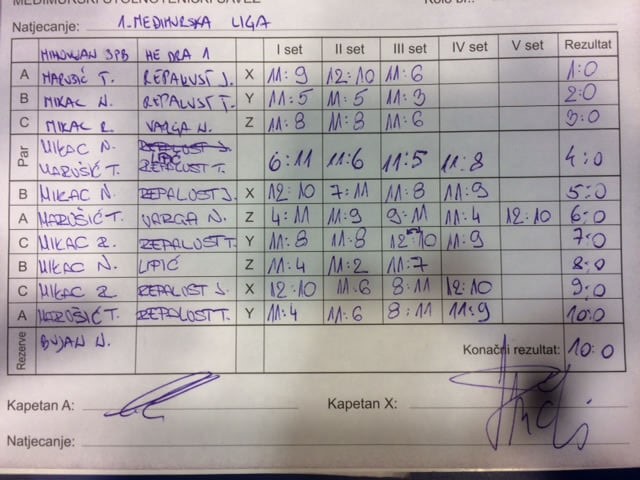 MEĐIMURSKI STOLNOTENISKI SAVEZ Kolo br.:
Natjecanje: 1. MEĐIMURSKA LIGA
MIHOVLJAN SPB HE DRA 1 I set II set III set IV set V set Rezultat
A MARUŠIĆ T. REPALUST J. X 11:9 12:10 11:6 1:0
B MIKAC N. REPALUST T. Y 11:5 11:5 11:3 2:0
C MIKAC R. VARGA N. Z 11:8 11:8 11:6 3:0
Par MIKAC N. REPALUST J. LIPIĆ
MARUŠIĆ T. REPALUST T. 6:11 11:6 11:5 11:8 4:0
B MIKAC N. REPALUST J. X 12:10 7:11 11:8 11:9 5:0
A MARUŠIĆ T. VARGA N. Z 4:11 11:9 9:11 11:4 12:10 6:0
C MIKAC R. REPALUST T. Y 11:8 11:8 12:10 11:9 7:0
B MIKAC N. LIPIĆ Z 11:4 11:2 11:7 8:0
C MIKAC R. REPALUST J. X 12:10 11:6 8:11 12:10 9:0
A MARUŠIĆ T. REPALUST T. Y 11:4 11:6 8:11 11:9 10:0
Rezerve BUJAN N. Konačni rezultat: 10:0
Kapetan A: Kapetan X:
Natjecanje: